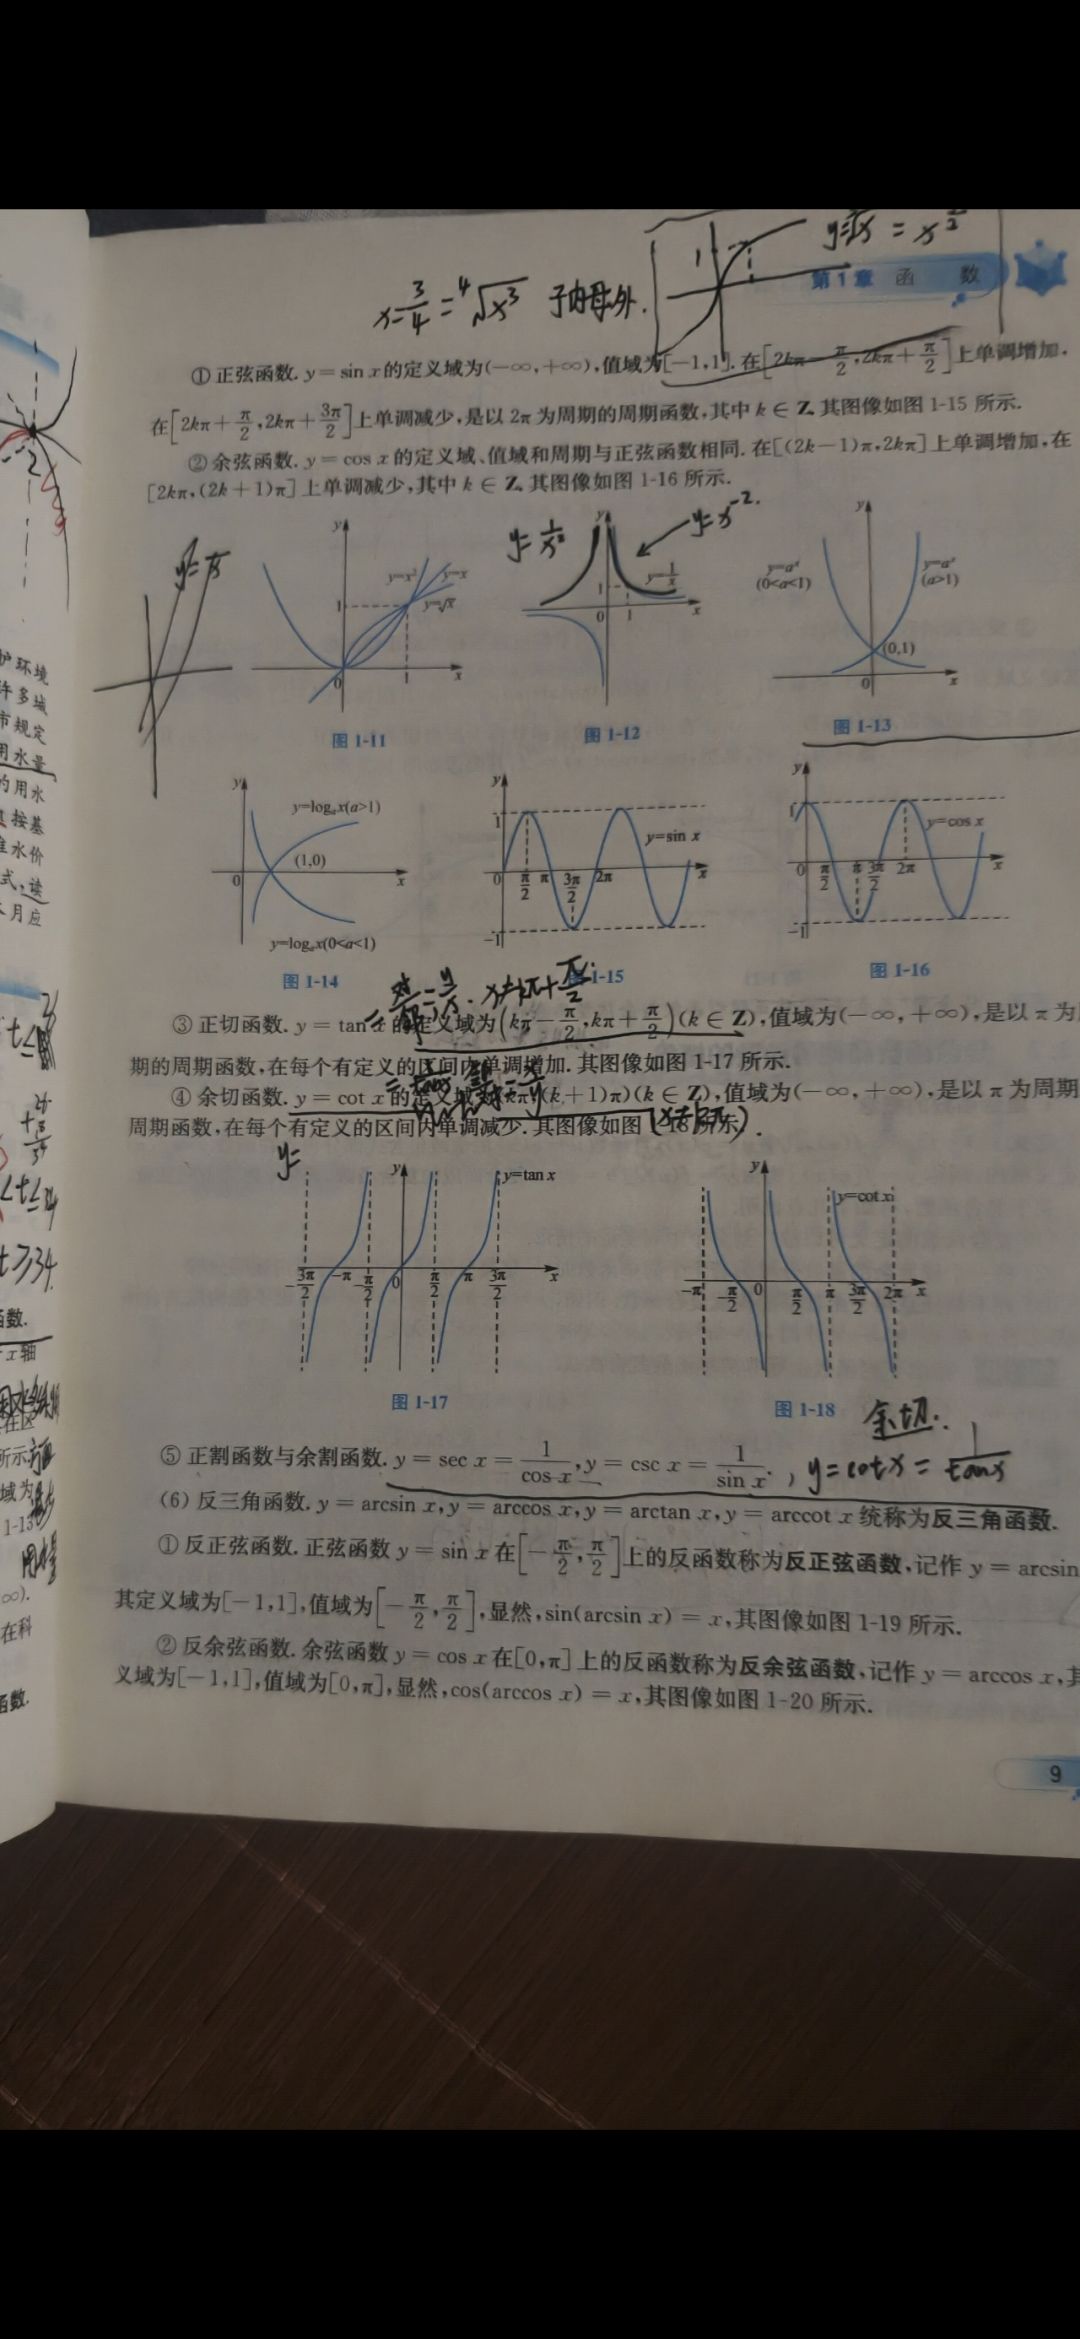 第1章 函 数
y=√x = x
x 3/4 = ⁴√x³ 子内母外.
①正弦函数. y=sin x的定义域为(-∞,+∞),值域为[-1,1]. 在[2kπ-π/2,2kπ+π/2]上单调增加.
在[2kπ+π/2,2kπ+3π/2]上单调减少,是以 2π 为周期的周期函数,其中 k∈Z. 其图像如图 1-15 所示.
②余弦函数. y=cos x 的定义域、值域和周期与正弦函数相同. 在[(2k-1)π,2kπ]上单调增加,在
[2kπ,(2k+1)π]上单调减少,其中 k∈Z. 其图像如图 1-16 所示.
y
y=x²
y=x
y=√x
1
0
1
x
图 1-11
y=x⁻².
y
y=1/x
1
0
1
x
图 1-12
y
y=aˣ
(0<a<1)
y=aˣ
(a>1)
(0,1)
0
x
图 1-13
y
y=logₐx(a>1)
(1,0)
0
x
y=logₐx(0<a<1)
图 1-14
y
1
y=sin x
0
π/2
π
3π/2
2π
x
-1
1-15
y
1
y=cos x
0
π/2
π
3π/2
2π
x
-1
图 1-16
= 对/邻 = y/x. x≠kπ+π/2.
③ 正切函数. y = tan x 的定义域为(kπ-π/2,kπ+π/2)(k∈Z),值域为(-∞,+∞),是以 π 为
期的周期函数,在每个有定义的区间内单调增加. 其图像如图 1-17 所示.
④ 余切函数. y = cot x 的定义域 kπ,(k+1)π)(k∈Z),值域为(-∞,+∞),是以 π 为周期
周期函数,在每个有定义的区间内单调减少. 其图像如图 所示.
y=
y
y=tan x
-3π/2
-π
-π/2
0
π/2
π
3π/2
x
图 1-17
y
y=cot x
-π
-π/2
0
π/2
π
3π/2
2π
x
图 1-18
余切.
⑤ 正割函数与余割函数. y = sec x = 1/cos x, y = csc x = 1/sin x. , y=cotx=1/tanx
(6) 反三角函数. y = arcsin x,y = arccos x,y = arctan x,y = arccot x 统称为反三角函数.
① 反正弦函数. 正弦函数 y = sin x 在[-π/2,π/2]上的反函数称为反正弦函数,记作 y = arcsin
其定义域为[-1,1],值域为[-π/2,π/2],显然,sin(arcsin x) = x,其图像如图 1-19 所示.
② 反余弦函数. 余弦函数 y = cos x 在[0,π]上的反函数称为反余弦函数,记作 y = arccos x,其
义域为[-1,1],值域为[0,π],显然,cos(arccos x) = x,其图像如图 1-20 所示.
9
护环境
许多城
市规定
用水量
的用水
按基
准水价
式,读
月应
t≥34.
函数.
x 轴
在区
所示
域为
1-13
∞).
在科
函数.